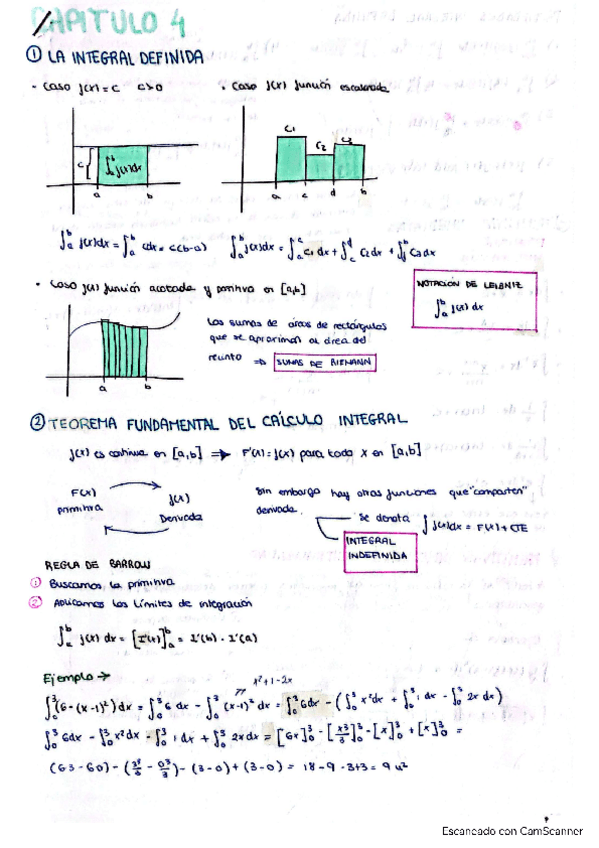 CAPITULO 4
① LA INTEGRAL DEFINIDA
· Caso f(x)=c c>0
· Caso f(x) función escalonada
c
∫ₐᵇ f(x)dx
a b
C1 C2 C3
a c d b
∫ₐᵇ f(x)dx = ∫ₐᵇ cdx = c(b-a)
∫ₐᵇ f(x)dx = ∫ₐᶜ C1 dx + ∫꜀ᵈ C2dx + ∫ C3dx
· Caso f(x) función acotada y positiva en [a,b]
NOTACIÓN DE LEIBNIZ
∫ₐᵇ f(x) dx
a b
Las sumas de áreas de rectángulos
que se aproximan al área del
recinto ⇒ SUMAS DE RIEMANN
② TEOREMA FUNDAMENTAL DEL CÁLCULO INTEGRAL
f(x) es continua en [a,b] ⇒ F'(x)=f(x) para todo x en [a,b]
F(x)
primitiva
f(x)
Derivada
Sin embargo hay otras funciones que "comparten"
derivada.
Se denota ∫ f(x)dx = F(x)+CTE
INTEGRAL
INDEFINIDA
REGLA DE BARROW
① Buscamos la primitiva
② Aplicamos los límites de integración
∫ₐᵇ f(x) dx = [F(x)]ₐᵇ = F(b) - F(a)
Ejemplo →
x²+1-2x
∫₀³(6-(x-1)²)dx = ∫₀³ 6 dx - ∫₀³ (x-1)² dx = ∫₀³ 6dx - (∫₀³ x²dx + ∫₀³ 1 dx - ∫₀³ 2x dx)
∫₀³ 6dx - ∫₀³ x²dx - ∫₀³ 1 dx + ∫₀³ 2x dx = [6x]₀³ - [x³/3]₀³ - [x]₀³ + [x]₀³ =
(63-60) - (3³/3 - 0³/3) - (3-0) + (3-0) = 18-9-3+3 = 9 u²
Escaneado con CamScanner